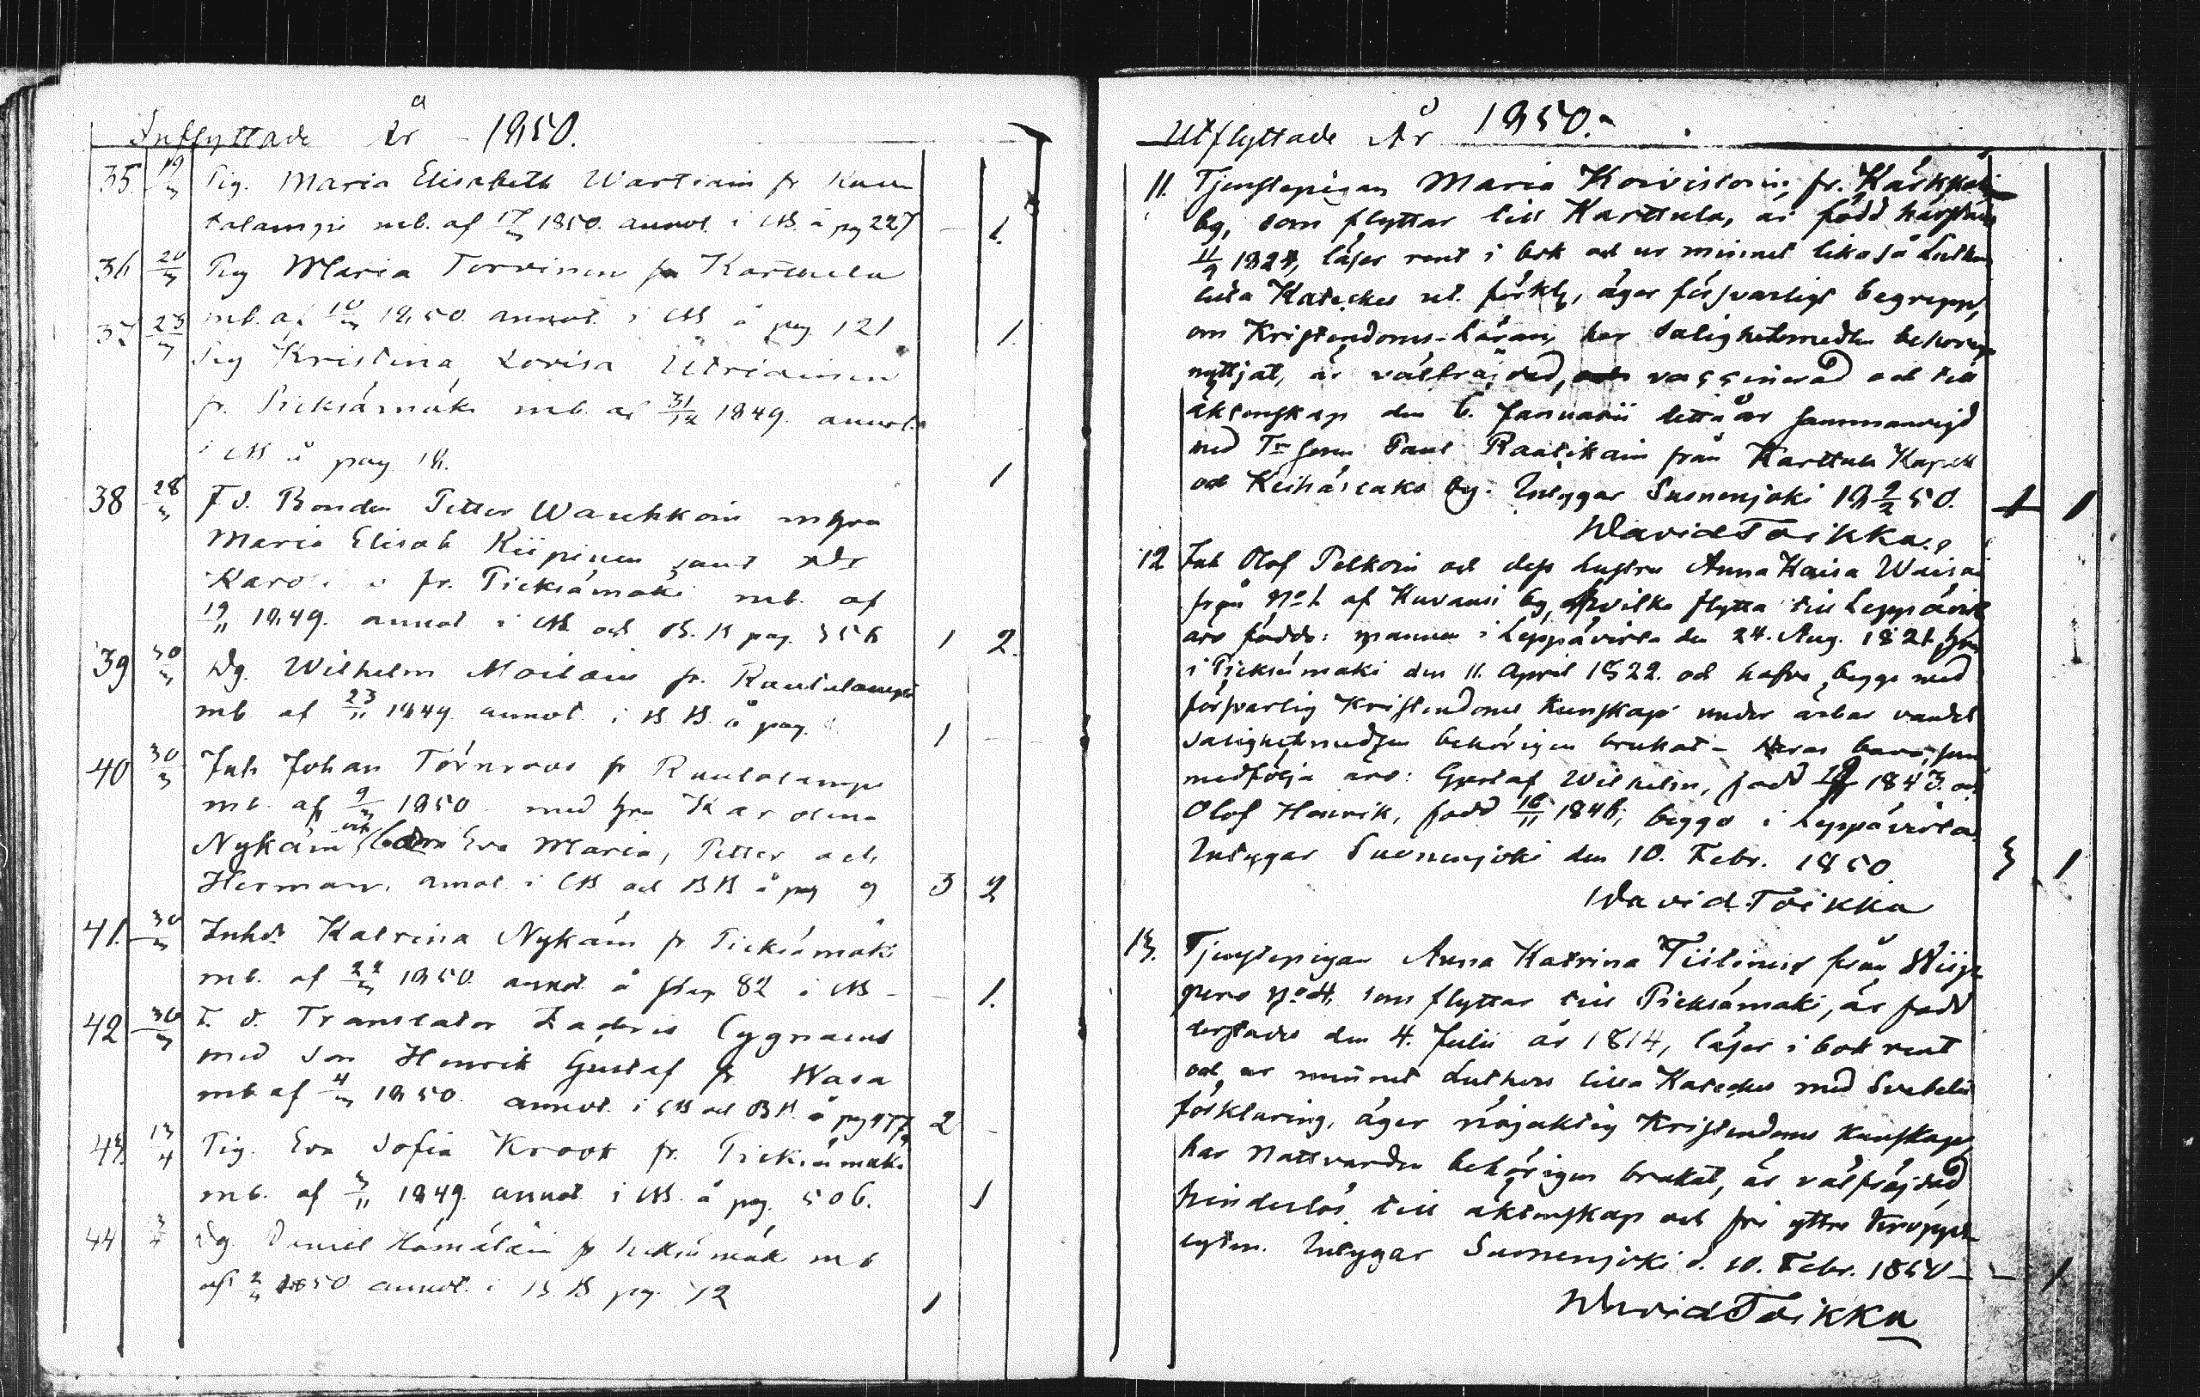 Inflyttade År 1850.
35 19/3 Pig. Maria Elisabeth Wartiain fr Rau
talampi mb. af 17/3 1850. annot. i CB. å pg 227 - 1.
36 20/3 Pig Maria Torvinen fr Karttula
mb. af 10/3 1850. annot. i CB å pag 121 1.
37 23/3 Pig Kristina Lovisa Utriainen
fr. Pieksämäki mb. af 31/12 1849. annot.
i CB å pag 18. 1
38 28/3 F.d. Bonden Petter Wauhkoin m hru
Maria Elisab Kiipinen samt
fr. Pieksämäki mb. af
19/11 1849. annot i CB och B.B pag. 356 1 2.
39 30/3 Dg. Wilhelm Moilain fr. Rautalampi
mb af 23/11 1849. annot. i B B. å pag. 1 -
40 30/3 Inh Johan Törnroos fr Rautalampi
mb. af 9/3 1850 med hru Karolina
Nykäin och barn Eva Maria, Petter och
Herman. annot. i CB och BB å pag 9 3 2
41. 30/3 Inhs Katrina Nykäin fr Pieksämäki
mb. af 22/3 1850. annot. å pag 82 i CB - - 1.
42 30/3 F. d. Translator Zachris Cygnaeus
med son Henrik Gustaf fr Wasa
mb af 4/3 1850. annot. i CB och BB. å pag 477 2 -
43. 13/4 Pig. Eva Sofia Krook fr. Pieksämäki
mb. af 3/11 1849. annot. i CB. å pag. 506. 1
44 3/4 Dg. Daniel Hämäläin fr Pieksämäk mb
af 2/4 1850 annot. i B B pag. 72 1
Utflyttade År 1850.
11. Tjenstepigan Maria Koivistoin, fr. Kärkkäi
bg, som flyttar till Karttula, är född härstäds
11/9 1824, läser rent i bok och ur minnet likaså Luthers
lilla Kateches ut. förklg, äger försvarligt begrepp,
om Kristendoms-Läran, har Salighetsmedlen behörigen
nyttjat, är välfräjdad, vaccinerad och till
äktenskap den 6. Januarii detta år sammanvigd
med Paul Raatikain från Karttula Kapell
och Keihäslaks by. Intygar Suonenjoki 18 9/2 50. 1 1
David Toikka.
12 Inh Olof Pelkoin och dess hustru Anna Kaisa Waisai
från No 1. af Kuvansi by, hvilka flytta till Leppävirta
äro födde: mannen i Leppävirta den 24. Aug. 1821, hru
i Pieksämäki den 11. April 1822. och hafva begge med
försvarlig Kristendoms Kunskap under ärbar vandel
Salighetsmedlen behörigen brukat - Deras barn, som
medfölja äro: Gustaf Wilhelm, född 1843. och
Olof Henrik, född 16/11 1846; begge i Leppävirta.
Intygar Suonenjoki den 10. Febr. 1850. 3 1
David Toikka
13. Tjenstepigan Anna Katrina Tiilinein från Wiip
pero No 4, som flyttar till Pieksämäki, är född
derstädes den 4. Julii år 1814, läser i bok rent
och ur minnet Luthers lilla Kateches med Svebelii
förklaring, äger nöjaktig Kristendoms Kunskap,
har Nattvarden behörigen brukat, är välfräjdad,
hinderlös till äktenskap och fri yttre kropps
lyten. Intygar Suonenjoki d. 10. Febr. 1850 - - 1.
David Toikka